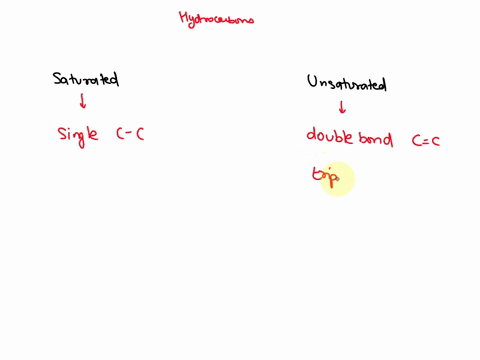 Hydrocarbons
Saturated
Unsaturated
Single C-C
double bond C=C
trip